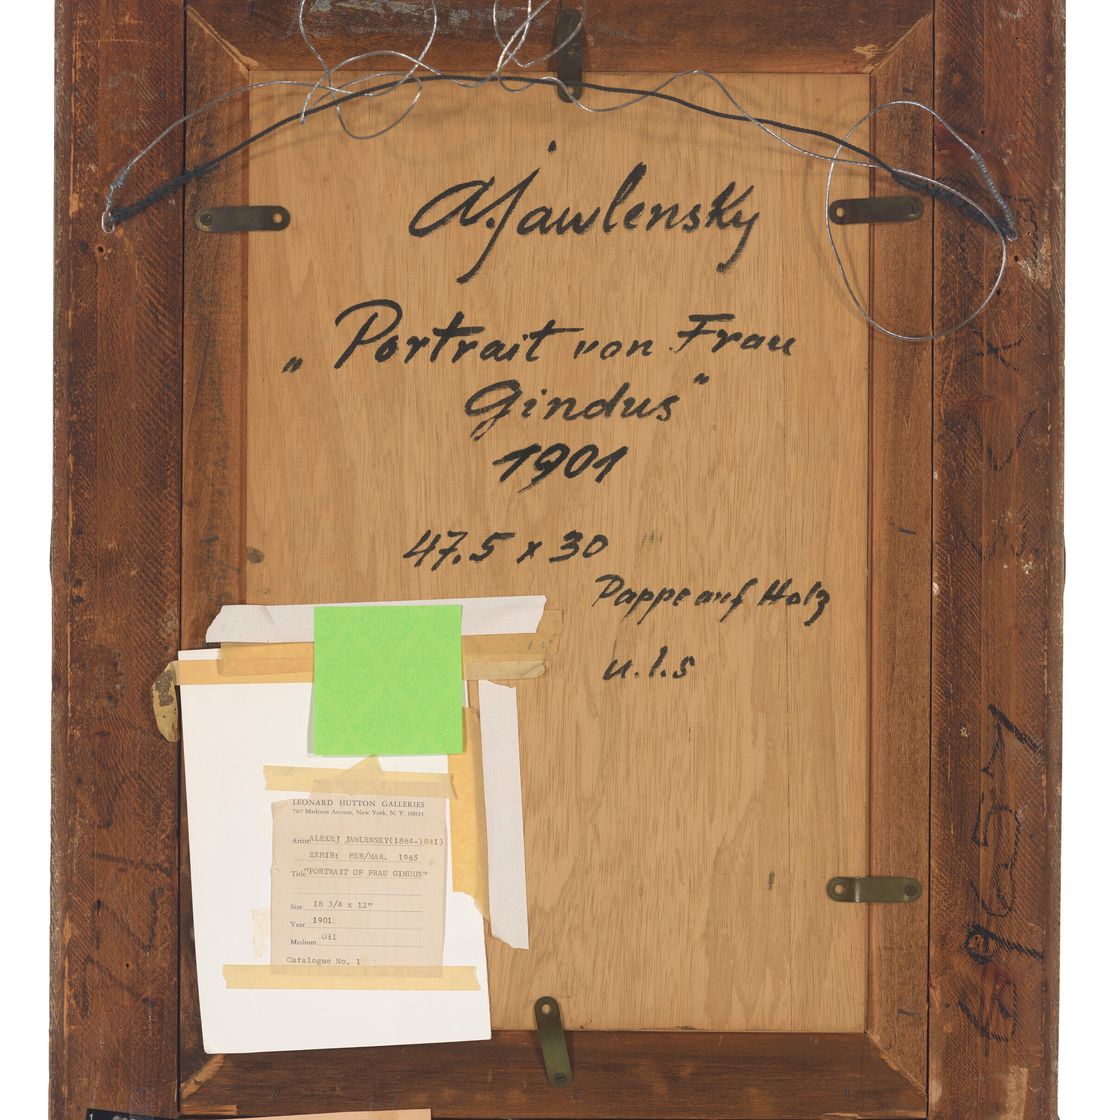 A. Jawlensky
„Portrait von Frau
Gindus"
1901
47.5 x 30
Pappe auf Holz
u.l.s
LEONARD HUTTON GALLERIES
787 Madison Avenue, New York, N. Y. 10021
Artist ALEXEJ JAWLENSKY(1864-1941)
EXHIB: FEB/MAR. 1965
Title "PORTRAIT OF FRAU GINDUS"
Size 18 3/4 x 12"
Year 1901
Medium Oil
Catalogue No. 1